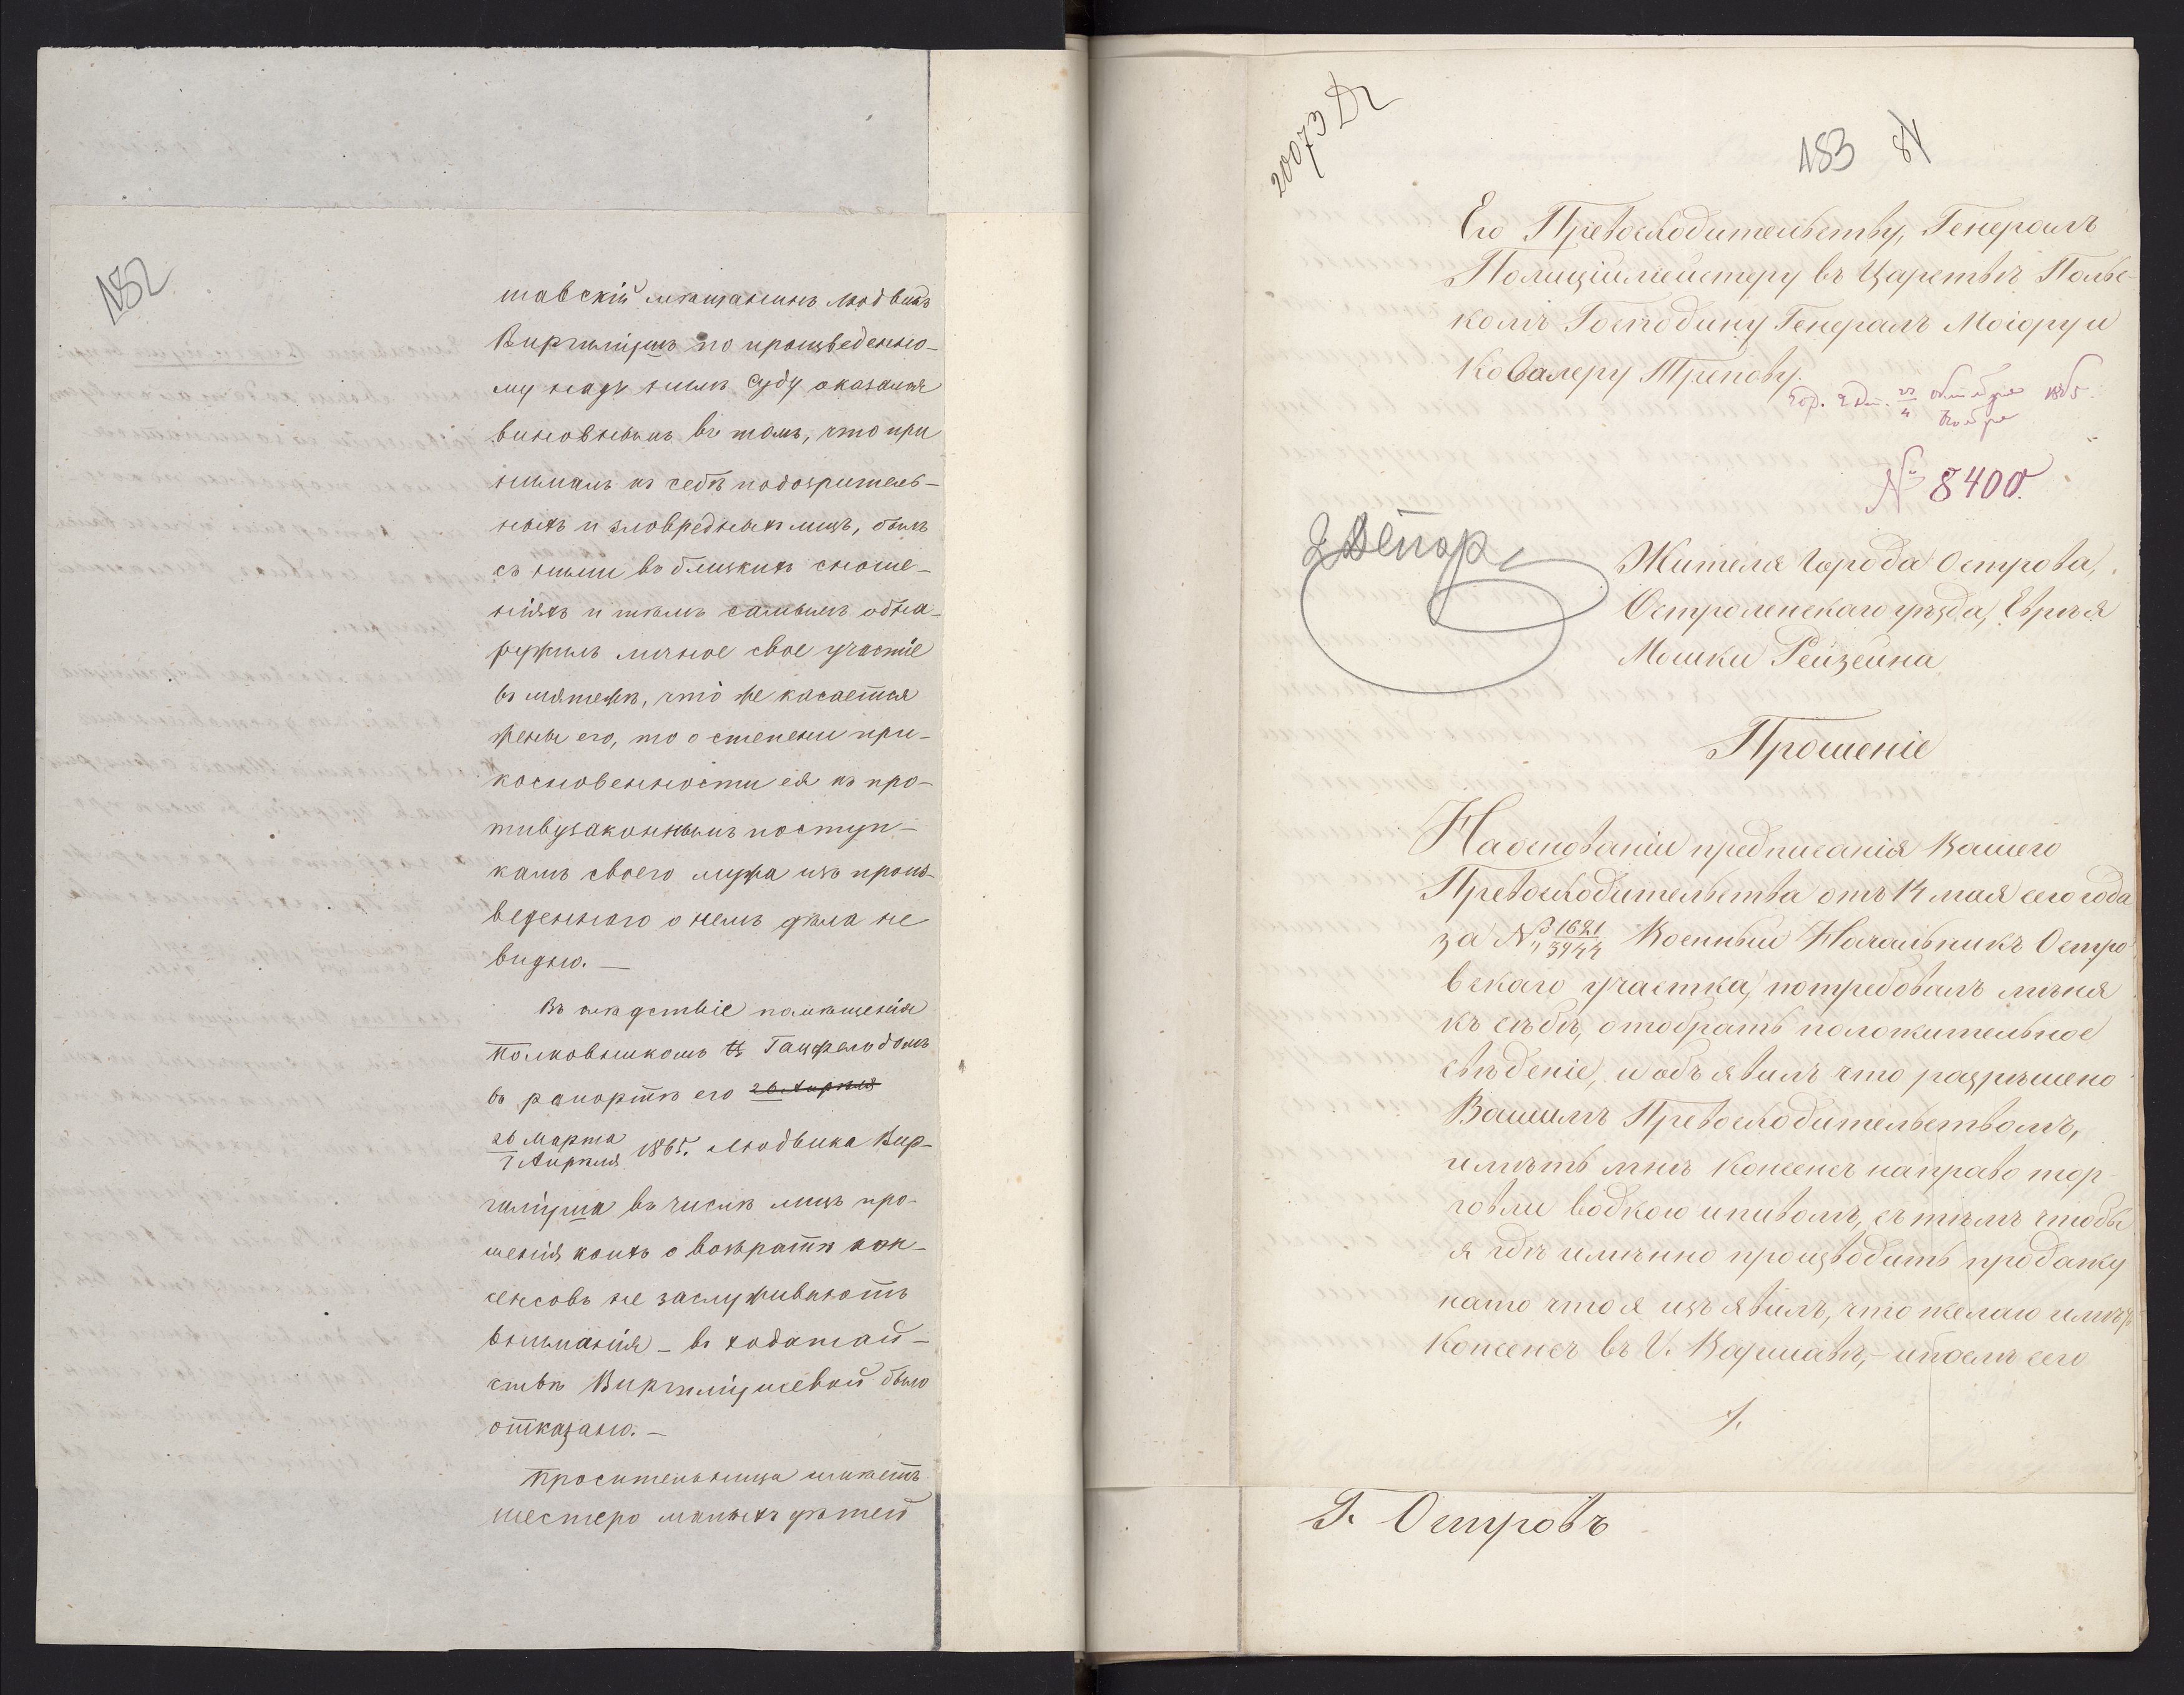 182
шавскій мѣщанинъ Людвикъ
Виргилiушъ по произведенно-
му надъ нимъ суду оказался
виновнымъ въ томъ, что при
нималъ къ себѣ подозритель-
ныхъ и зловредныхъ лицъ, былъ
съ ними въ близкихъ сноше-
ніяхъ и тѣмъ самымъ обна-
ружилъ личное свое участіе
въ мятежѣ, что же касается
жены его, то о степени при-
косновенности ея къ про-
тивузаконнымъ поступ-
камъ своего мужа изъ произ-
веденнаго о немъ дѣла не
видно. —
Въ слѣдствіе помѣщенія
Полковникомъ Ганфельдомъ
въ рапортѣ его 26 Апрѣля
26 Марта
7 Апрѣля 1865. Людвика Вир-
гилiуша въ числѣ лицъ про-
шенія коихъ о возвратѣ кон-
сенсовъ не заслуживаютъ
вниманія – въ ходатай-
ствѣ Виргилiушевой было
отказано. —
Просительница имѣетъ
шестеро малыхъ дѣтей
20073
183
84
Его Превосходительству, Генералъ
Полиціймейстеру въ Царствѣ Поль-
комъ Господину Генералъ Маіору и
Кавалеру Трепову.
22 Октября 1865.
4 Ноября
№ 8400.
Жителя города Острова,
Остроленскаго уѣзда, Еврея
Мошки Рейзейна
Прошеніе
На основаніи предписанія Вашего
Превосходительства отъ 14 мая сего года
за № 1621/3944 Военный Начальникъ Остро
вскаго участка, потребовалъ мѣня
къ сѣбѣ, отобрать положительное
свѣденіе, и объявилъ что разрѣшено
Вашимъ Превосходительствомъ,
имѣть мнѣ Консенсъ на право тор-
говли водкою и пивомъ, съ тѣмъ чтобы
я гдѣ имѣнно производить продажу
на то что я изъявилъ, что желаю имѣть
Консенсъ въ Г. Варшавѣ, – и посли сего
Г. Островъ